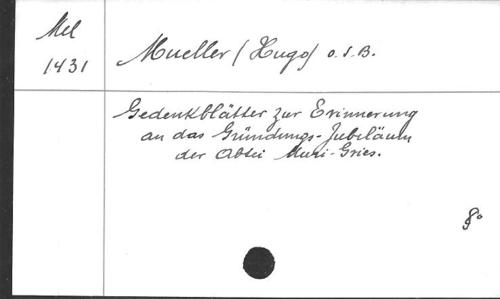 Mel
1431
Mueller (Hugo) O.S.B.
Gedenkblätter zur Erinnerung
an das Gründungs-Jubiläum
der Abtei Muri-Gries.
8°